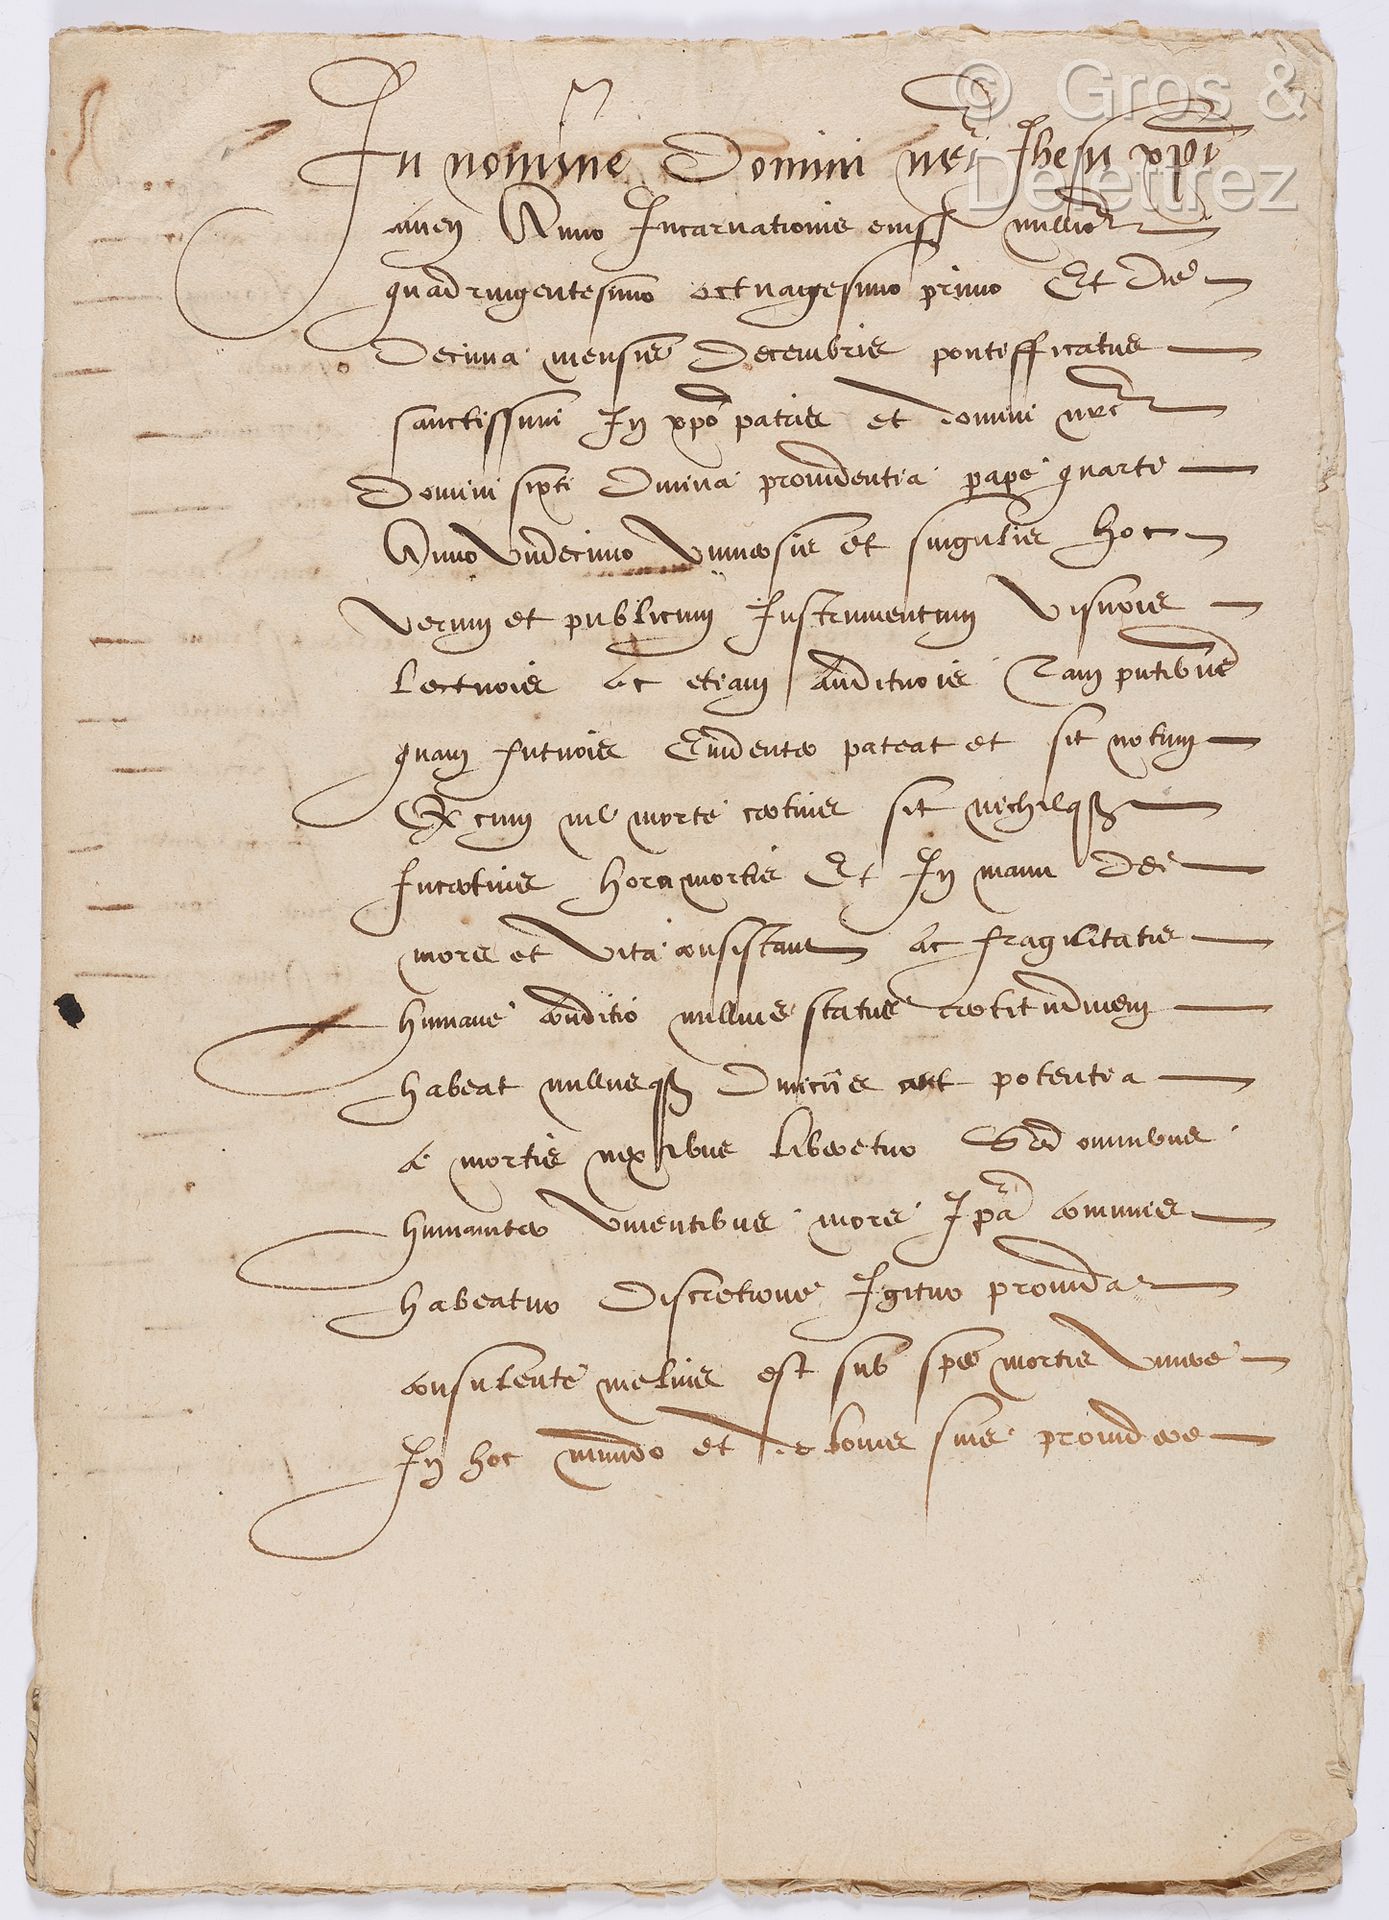 © Gros & Delettrez
In nomine Domini nr̄i Jhesu xp̄i
amen Anno Incarnationis eiusd millio
quadringentesimo octuagesimo primo Et die
decima mensis Decembris pontifficatus
sanctissimi In xp̄o patris et domini nr̄i
Domini sixti Divina providentia pape quarti
Anno Undecimo Universis et singulis hoc
verum et publicum Instrumentum visuris
Lecturis ac etiam Audituris Tam pn̄tibus
quam futuris Evidenter pateat et sit notum
Cum morte certius sit nichilqz
Incertius hora mortis Et In manu dei
mors et vita consistant ac fragilitatis
humane conditio nullius status certitudinem
habeat nullusqz divitiis aut potentia
a mortis nexibus liberetur Sed omnibus
humaniter viventibus mors Ip̄a communis
habeatur Discretione Igitur provida
consulente melius est sub spe mortis vivere
In hoc mundo et de bonis suis providere